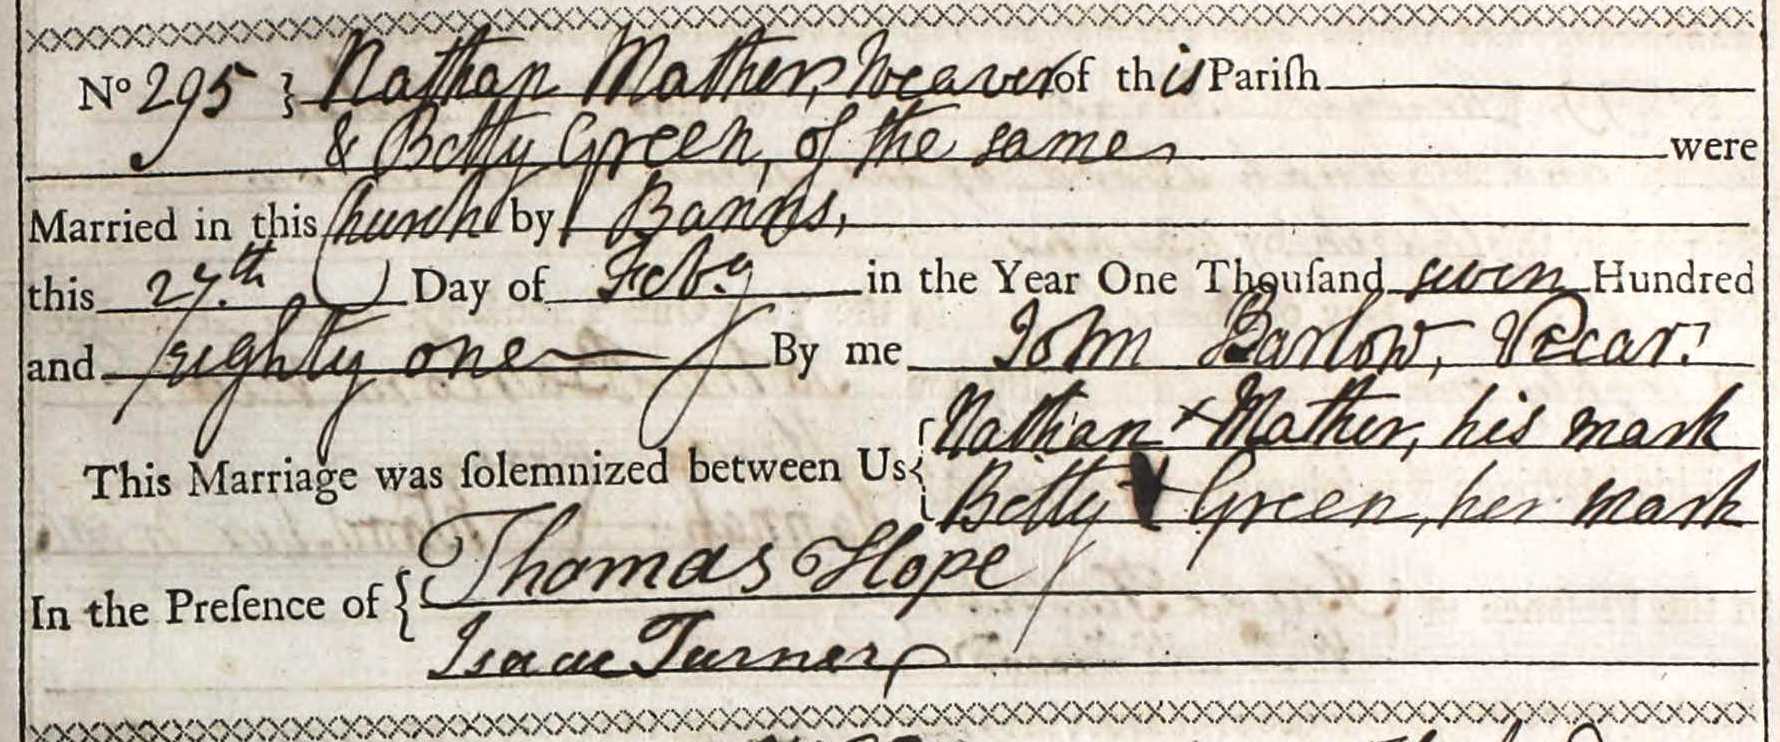 No 295 } Nathan Mather, Weaver of this Pariſh
& Betty Green, of the same were
Married in this Church by Banns,
this 27.th Day of Feby in the Year One Thouſand seven Hundred
and eighty one By me John Barlow, Vicar.
This Marriage was ſolemnized between Us { Nathan × Mather, his mark
Betty + Green, her mark
In the Preſence of { Thomas Hope
Isaac Turner